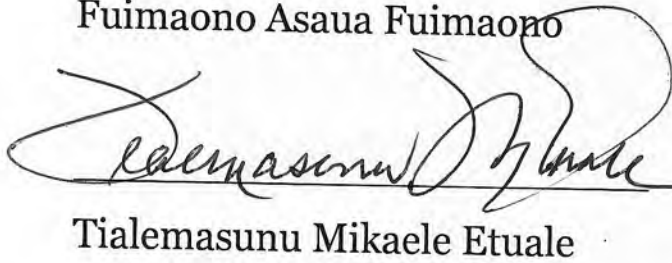 Fuimaono Asaua Fuimaono
Tialemasunu
Tialemasunu Mikaele Etuale